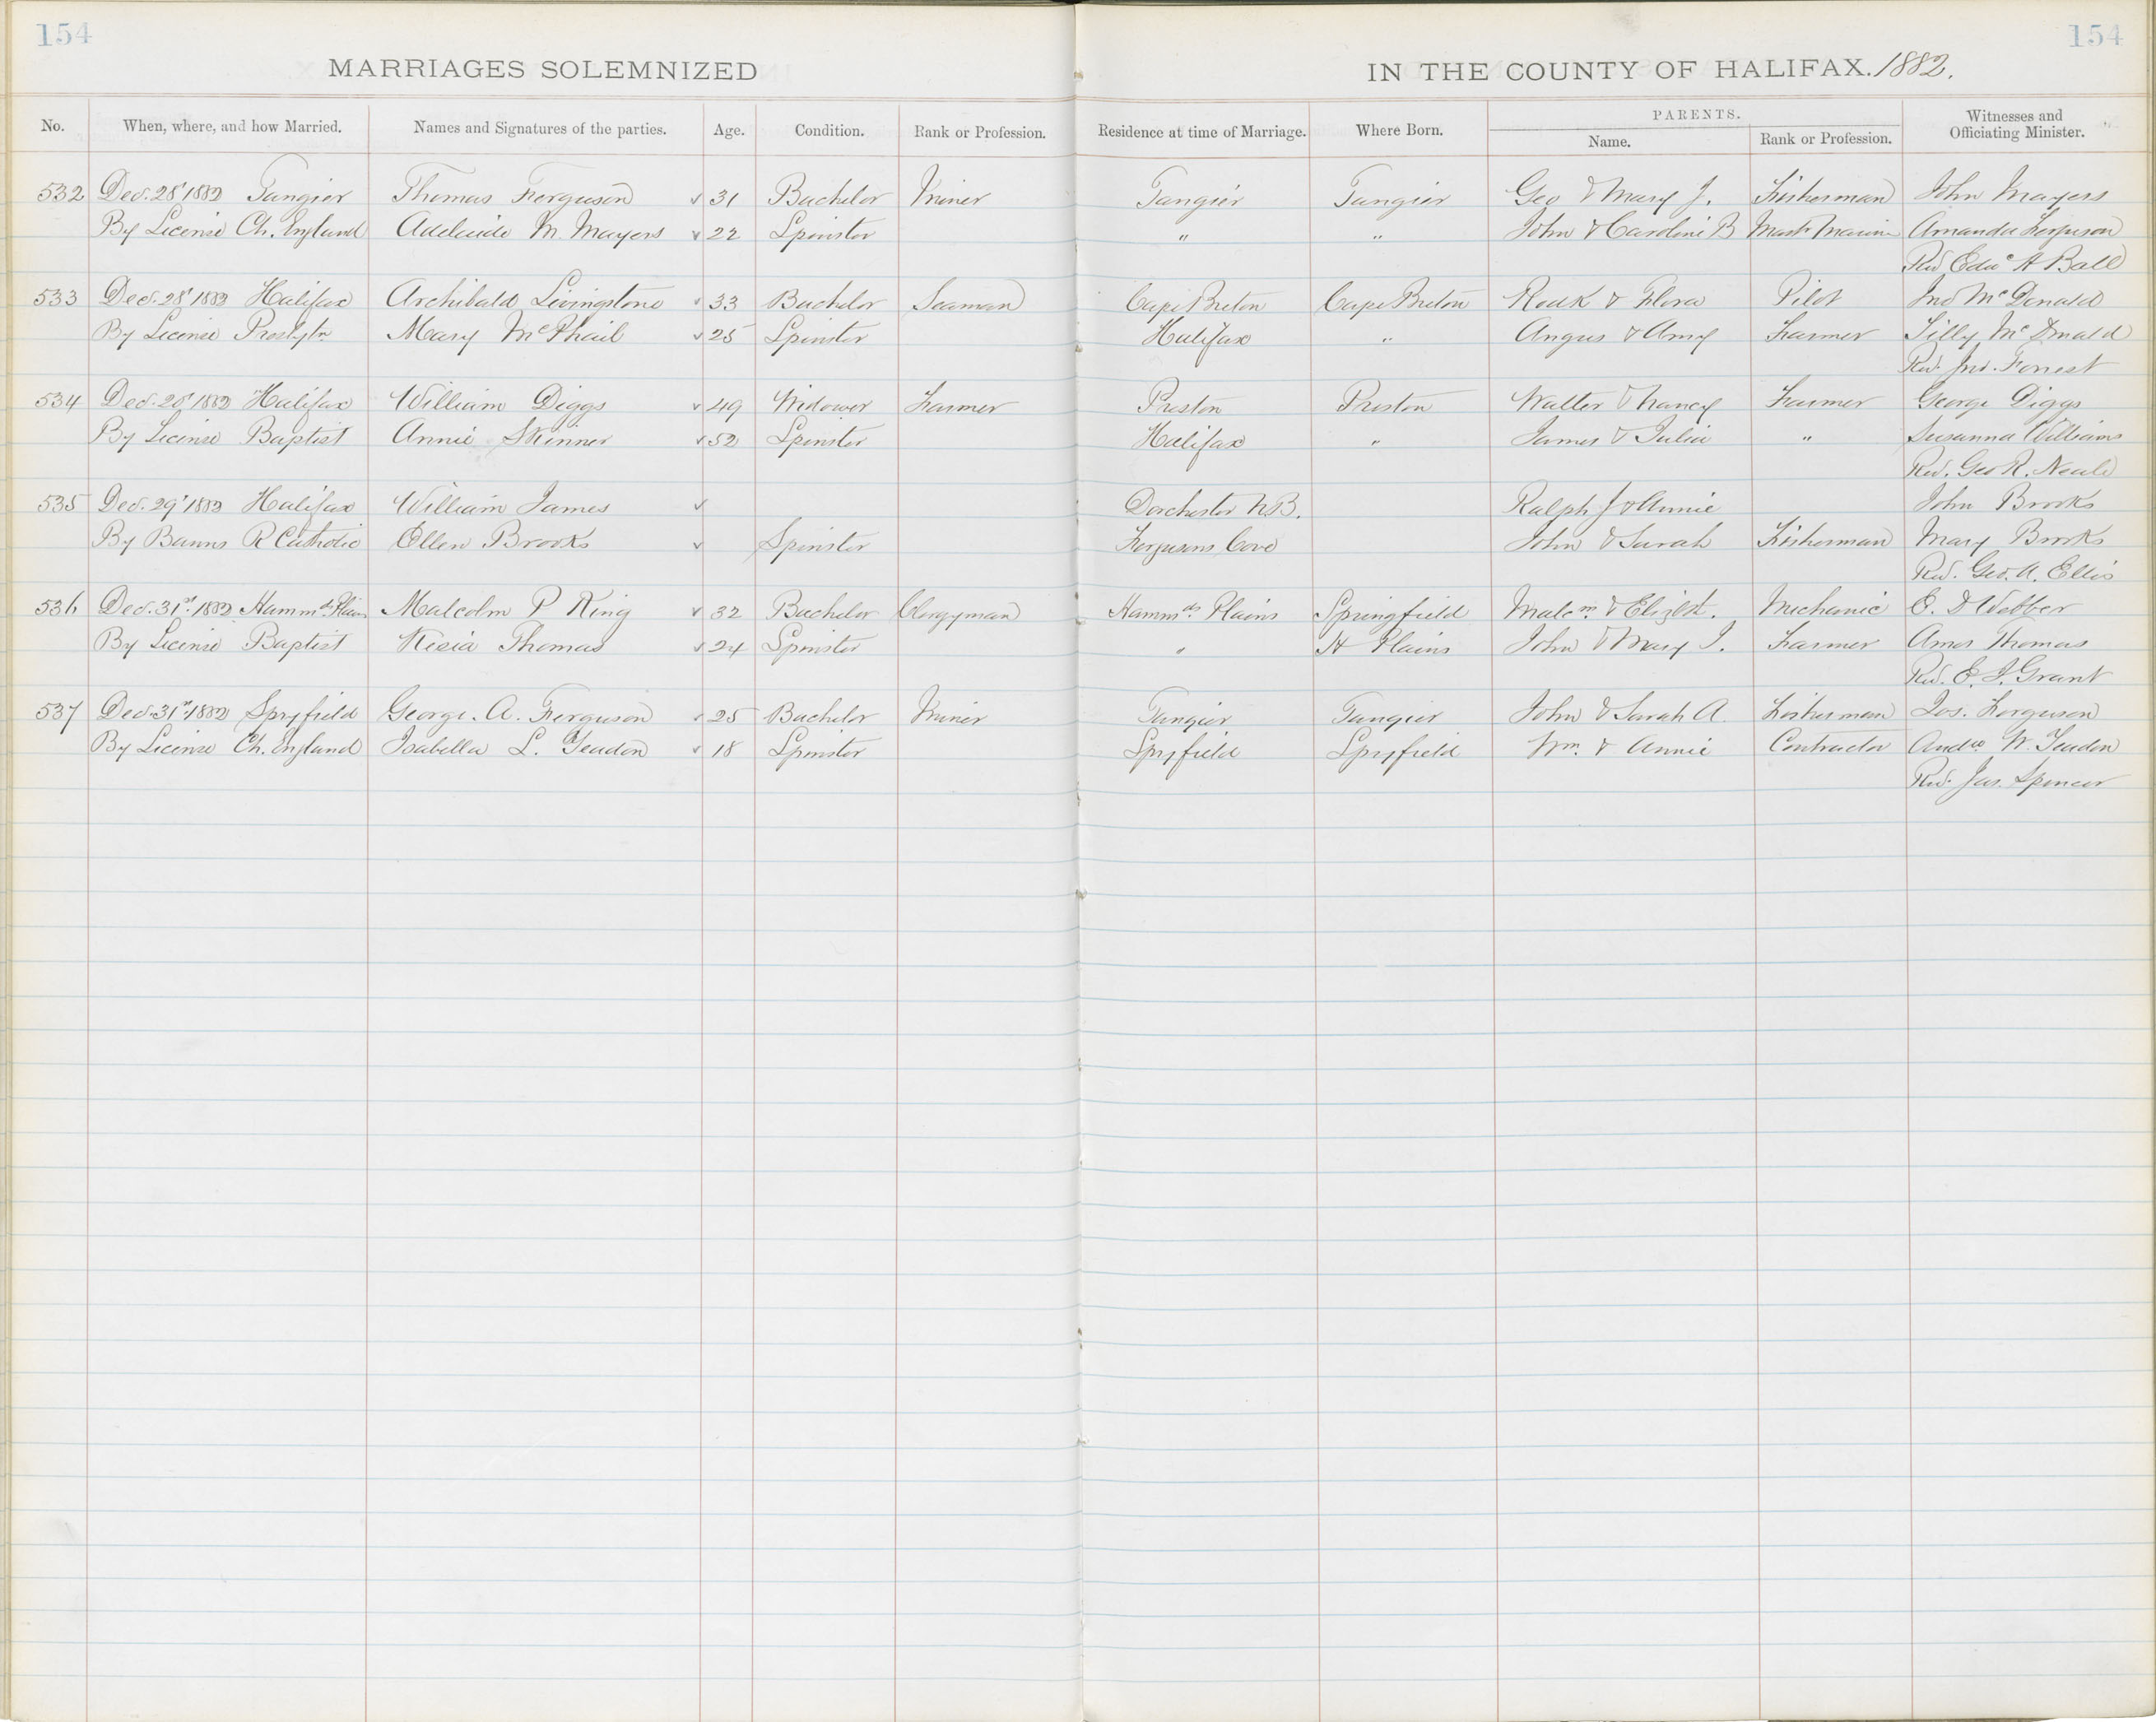 154 154
MARRIAGES SOLEMNIZED IN THE COUNTY OF HALIFAX. 1882.
No. When, where, and how Married. Names and Signatures of the parties. Age. Condition. Rank or Profession. Residence at time of Marriage. Where Born. PARENTS. Name. Rank or Profession. Witnesses and Officiating Minister.
532 Dec. 28' 1882 Tangier Thomas Ferguson ✓ 31 Bachelor Miner Tangier Tangier Geo & Mary J. Fisherman John Mayers
By License Ch. England Adelaide M. Mayers ✓ 22 Spinster " " John & Caroline B Mastr Marine Amanda Ferguson
Rev Edw A Ball
533 Dec. 28' 1882 Halifax Archibald Livingstone ✓ 33 Bachelor Seaman Cape Breton Cape Breton & Flora Pilot Jno McDonald
By License Presbytn Mary McPhail ✓ 25 Spinster Halifax " Angus & Amy Farmer Tilly McDonald
Rev. Jno. Forrest
534 Dec. 28' 1882 Halifax William Diggs ✓ 49 Widower Farmer Preston Preston Walter & Nancy Farmer George Diggs
By License Baptist Annie Skinner ✓ 52 Spinster Halifax " James & Julia " Susanna Williams
Rev. Geo R. Neale
535 Dec. 29' 1882 Halifax William James ✓ Dorchester N.B. Ralph J & Annie John Brooks
By Banns R Catholic Ellen Brooks ✓ Spinster Fergusons Cove John & Sarah Fisherman Mary Brooks
Rev. Geo. A. Ellis
536 Dec. 31st 1882 Hammds Plains Malcolm P King ✓ 32 Bachelor Clergyman Hammds Plains Springfield Malcm & Elizbt. Mechanic E. D Webber
By License Baptist Kesia Thomas ✓ 24 Spinster " H Plains John & Mary J. Farmer Amos Thomas
Rev. E. J. Grant
537 Dec. 31st 1882 Spryfield George. A. Ferguson ✓ 25 Bachelor Miner Tangier Tangier John & Sarah A. Fisherman Jos. Ferguson
By License Ch. England Isabella L. Yeadon ✓ 18 Spinster Spryfield Spryfield Wm. & Annie Contractor Andw W. Yeadon
Rev. Jas. Spencer